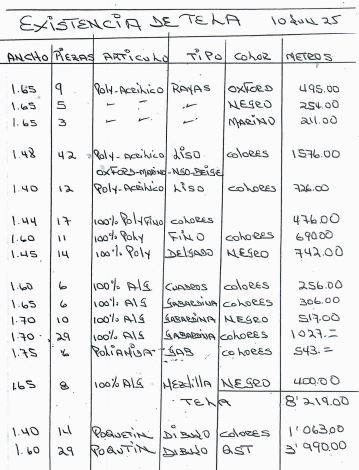 EXISTENCIA DE TELA 10 JUN 25
ANCHO PIEZAS ARTICULO TIPO COLOR METROS
1.65 9 POLY-ACRILICO RAYAS OXFORD 495.00
1.65 5 " " " NEGRO 254.00
1.65 3 " " " MARINO 211.00
1.48 42 POLY-ACRILICO LISO COLORES 1576.00
OXFORD-MARINO-NGO-BEIGE
1.40 12 POLY-ACRILICO LISO COLORES 726.00
1.44 17 100% POLY FINO COLORES 476.00
1.60 11 100% POLY FINO COLORES 690.00
1.45 14 100% POLY DELGADO NEGRO 742.00
1.60 6 100% ALG CUADROS COLORES 256.00
1.65 6 100% ALG GABARDINA COLORES 306.00
1.70 10 100% ALG GABARDINA NEGRO 517.00
1.70 29 100% ALG GABARDINA COLORES 1027.=
1.75 6 POLIAMIDA GAB COLORES 543.=
1.65 8 100% ALG MEZLILLA NEGRO 400.00
TELA 8'219.00
1.40 14 POQUETIN DISENO COLORES 1'063.00
1.60 29 POQUTIN DISENO EST 3'990.00